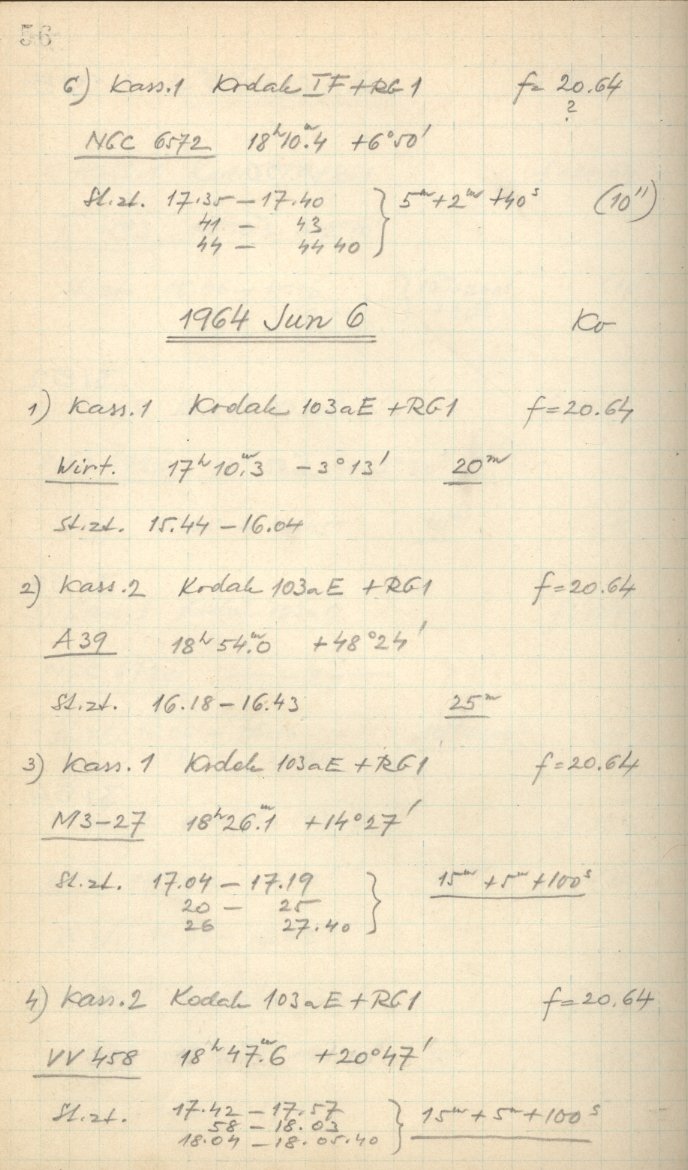 56
6) Kass.1 Kodak IF + RG1 f = 20.64
?
NGC 6572 18ʰ10ᵐ.4 +6°50'
St.zt. 17.35 – 17.40 } 5ᵐ+2ᵐ+40ˢ (10'')
41 – 43
44 – 44 40
1964 Jun 6 Ko
1) Kass.1 Kodak 103aE + RG1 f = 20.64
Wirt. 17ʰ10ᵐ.3 –3°13' 20ᵐ
St.zt. 15.44 – 16.04
2) Kass.2 Kodak 103aE + RG1 f = 20.64
A39 18ʰ54ᵐ.0 +48°24'
St.zt. 16.18 – 16.43 25ᵐ
3) Kass.1 Kodak 103aE + RG1 f = 20.64
M3–27 18ʰ26ᵐ.1 +14°27'
St.zt. 17.04 – 17.19 } 15ᵐ+5ᵐ+100ˢ
20 – 25
26 27.40
4) Kass.2 Kodak 103aE + RG1 f = 20.64
VV 458 18ʰ47ᵐ.6 +20°47'
St.zt. 17.42 – 17.57 } 15ᵐ+5ᵐ+100ˢ
58 – 18.03
18.04 – 18.05.40